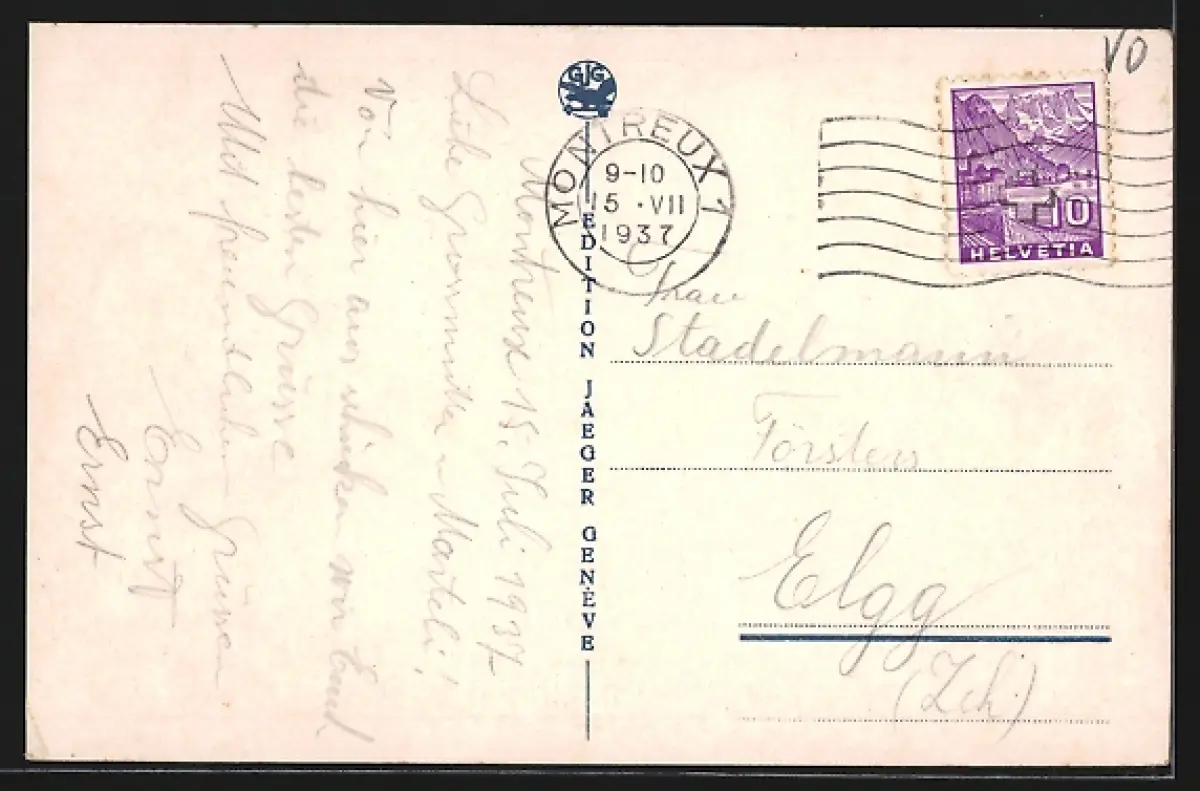 VO
GJG
MONTREUX 1
9-10
15 · VII
1937
10
HELVETIA
EDITION JAEGER GENÈVE
Montreux 15. Juli 1937
Liebe Grossmutter u Marteli!
Von hier aus schicken wir Euch
die besten Grüsse
Mit freundlichen Grüssen
Ernst
Ernst
Frau
Stadelmann
Försters
Elgg
(Zch.)